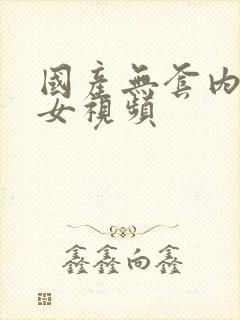 國產無套內
女視頻
鑫鑫向鑫